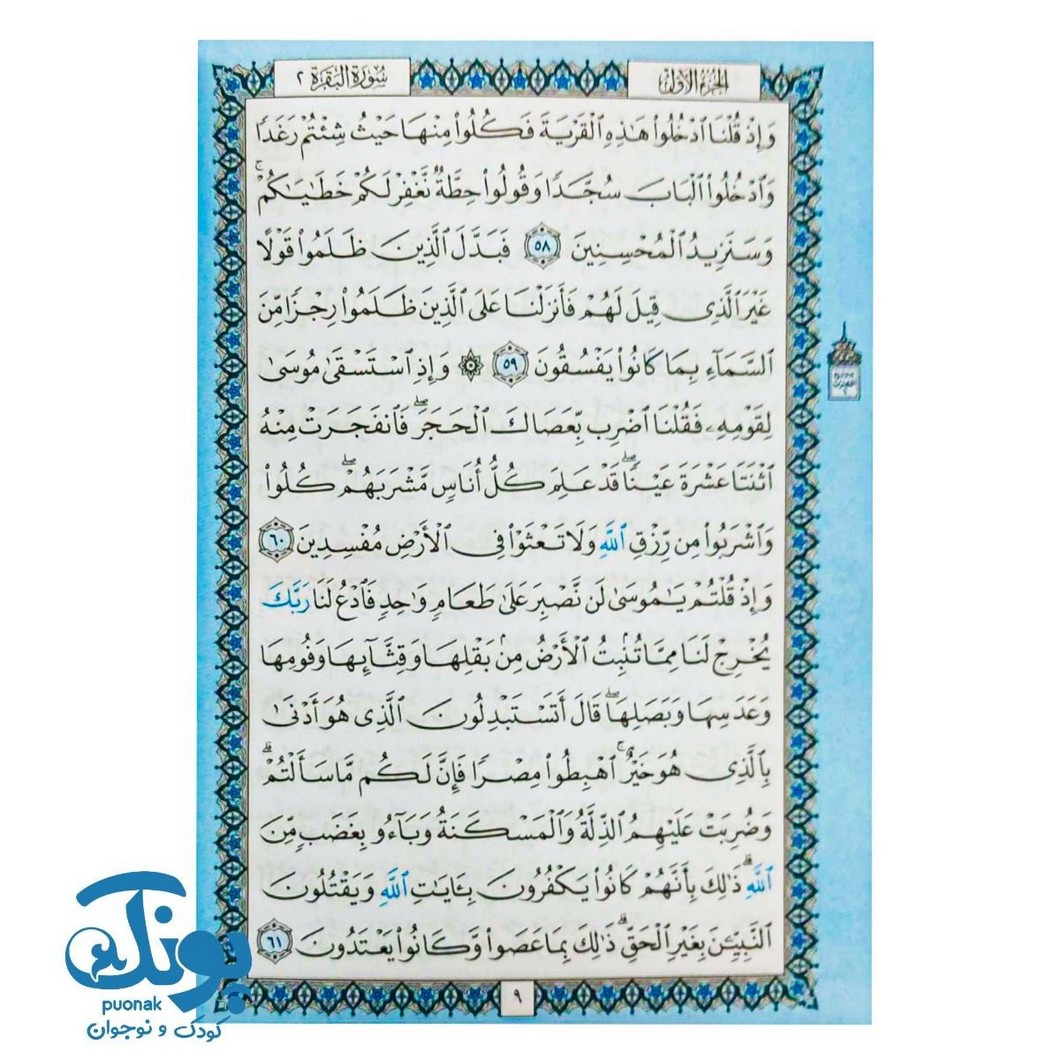 سُورَةُ البَقَرَة ٢
الجُزءُ الأوّل
وَإِذْ قُلْنَا ٱدْخُلُوا۟ هَـٰذِهِ ٱلْقَرْيَةَ فَكُلُوا۟ مِنْهَا حَيْثُ شِئْتُمْ رَغَدًا
وَٱدْخُلُوا۟ ٱلْبَابَ سُجَّدًا وَقُولُوا۟ حِطَّةٌ نَّغْفِرْ لَكُمْ خَطَـٰيَـٰكُمْ ۚ
وَسَنَزِيدُ ٱلْمُحْسِنِينَ ٥٨ فَبَدَّلَ ٱلَّذِينَ ظَلَمُوا۟ قَوْلًا
غَيْرَ ٱلَّذِى قِيلَ لَهُمْ فَأَنزَلْنَا عَلَى ٱلَّذِينَ ظَلَمُوا۟ رِجْزًا مِّنَ
ٱلسَّمَآءِ بِمَا كَانُوا۟ يَفْسُقُونَ ٥٩ ۞ وَإِذِ ٱسْتَسْقَىٰ مُوسَىٰ
لِقَوْمِهِۦ فَقُلْنَا ٱضْرِب بِّعَصَاكَ ٱلْحَجَرَ ۖ فَٱنفَجَرَتْ مِنْهُ
ٱثْنَتَا عَشْرَةَ عَيْنًا ۖ قَدْ عَلِمَ كُلُّ أُنَاسٍ مَّشْرَبَهُمْ ۖ كُلُوا۟
وَٱشْرَبُوا۟ مِن رِّزْقِ ٱللَّهِ وَلَا تَعْثَوْا۟ فِى ٱلْأَرْضِ مُفْسِدِينَ ٦٠
وَإِذْ قُلْتُمْ يَـٰمُوسَىٰ لَن نَّصْبِرَ عَلَىٰ طَعَامٍ وَٰحِدٍ فَٱدْعُ لَنَا رَبَّكَ
يُخْرِجْ لَنَا مِمَّا تُنۢبِتُ ٱلْأَرْضُ مِنۢ بَقْلِهَا وَقِثَّآئِهَا وَفُومِهَا
وَعَدَسِهَا وَبَصَلِهَا ۖ قَالَ أَتَسْتَبْدِلُونَ ٱلَّذِى هُوَ أَدْنَىٰ
بِٱلَّذِى هُوَ خَيْرٌ ۚ ٱهْبِطُوا۟ مِصْرًا فَإِنَّ لَكُم مَّا سَأَلْتُمْ ۗ
وَضُرِبَتْ عَلَيْهِمُ ٱلذِّلَّةُ وَٱلْمَسْكَنَةُ وَبَآءُو بِغَضَبٍ مِّنَ
ٱللَّهِ ۗ ذَٰلِكَ بِأَنَّهُمْ كَانُوا۟ يَكْفُرُونَ بِـَٔايَـٰتِ ٱللَّهِ وَيَقْتُلُونَ
ٱلنَّبِيِّـۧنَ بِغَيْرِ ٱلْحَقِّ ۗ ذَٰلِكَ بِمَا عَصَوا۟ وَّكَانُوا۟ يَعْتَدُونَ ٦١
٩
پونک
puonak
کودک و نوجوان